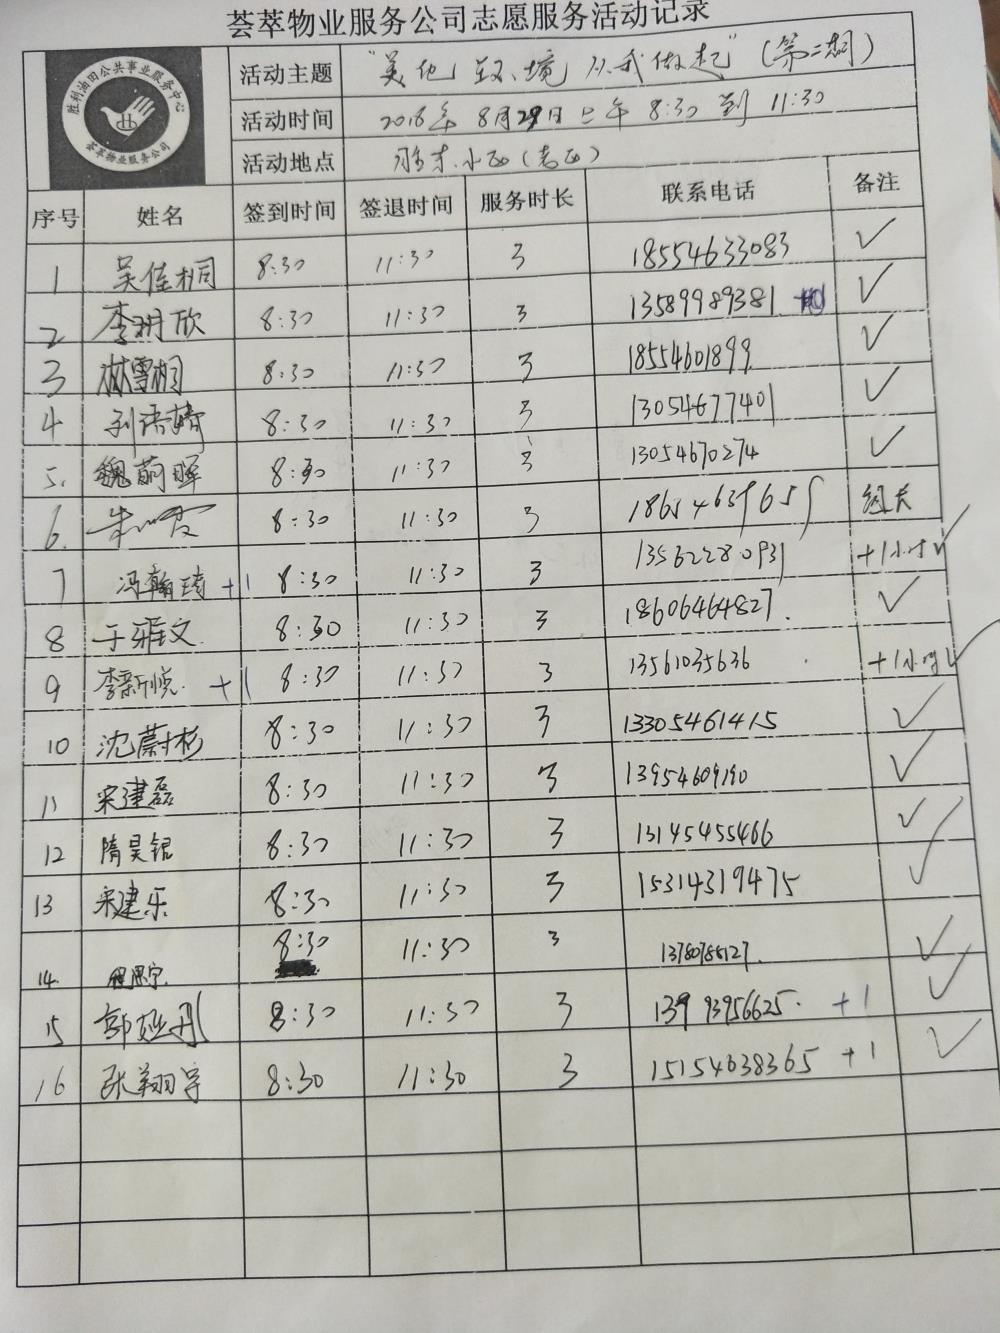 荟萃物业服务公司志愿服务活动记录
胜利油田公共事业服务中心
荟萃物业服务公司
活动主题 "美化环境 从我做起"(第二期)
活动时间 2018年8月29日上午 8:30 到 11:30
活动地点 胜东小区(南区)
序号 姓名 签到时间 签退时间 服务时长 联系电话 备注
1 吴佳桐 8:30 11:30 3 18554633083 ✓
2 李玥欣 8:30 11:30 3 13589989381 ✓
3 林雪桐 8:30 11:30 3 18554601899 ✓
4 刘语婧 8:30 11:30 3 13054677401 ✓
5. 魏蔚晖 8:30 11:30 3 13054670274 ✓
6. 8:30 11:30 3 18654639655 组长
7 冯翰琦 +1 8:30 11:30 3 13562280931 +1小时 ✓
8 于雅文 8:30 11:30 3 18606464827. ✓
9 李新悦 +1 8:30 11:30 3 13561035636 +1小时 ✓
10 沈蔚杉 8:30 11:30 3 13305461415 ✓
11 宋建磊 8:30 11:30 3 13954609190 ✓
12 隋昊锟 8:30 11:30 3 13145455466 ✓
13 宋建乐 8:30 11:30 3 15314319475 ✓
14. 程思宁 8:30 11:30 3 ✓
15 郭 8:30 11:30 3 13993956625. +1 ✓
16 张翔宇 8:30 11:30 3 15154638365 +1 ✓